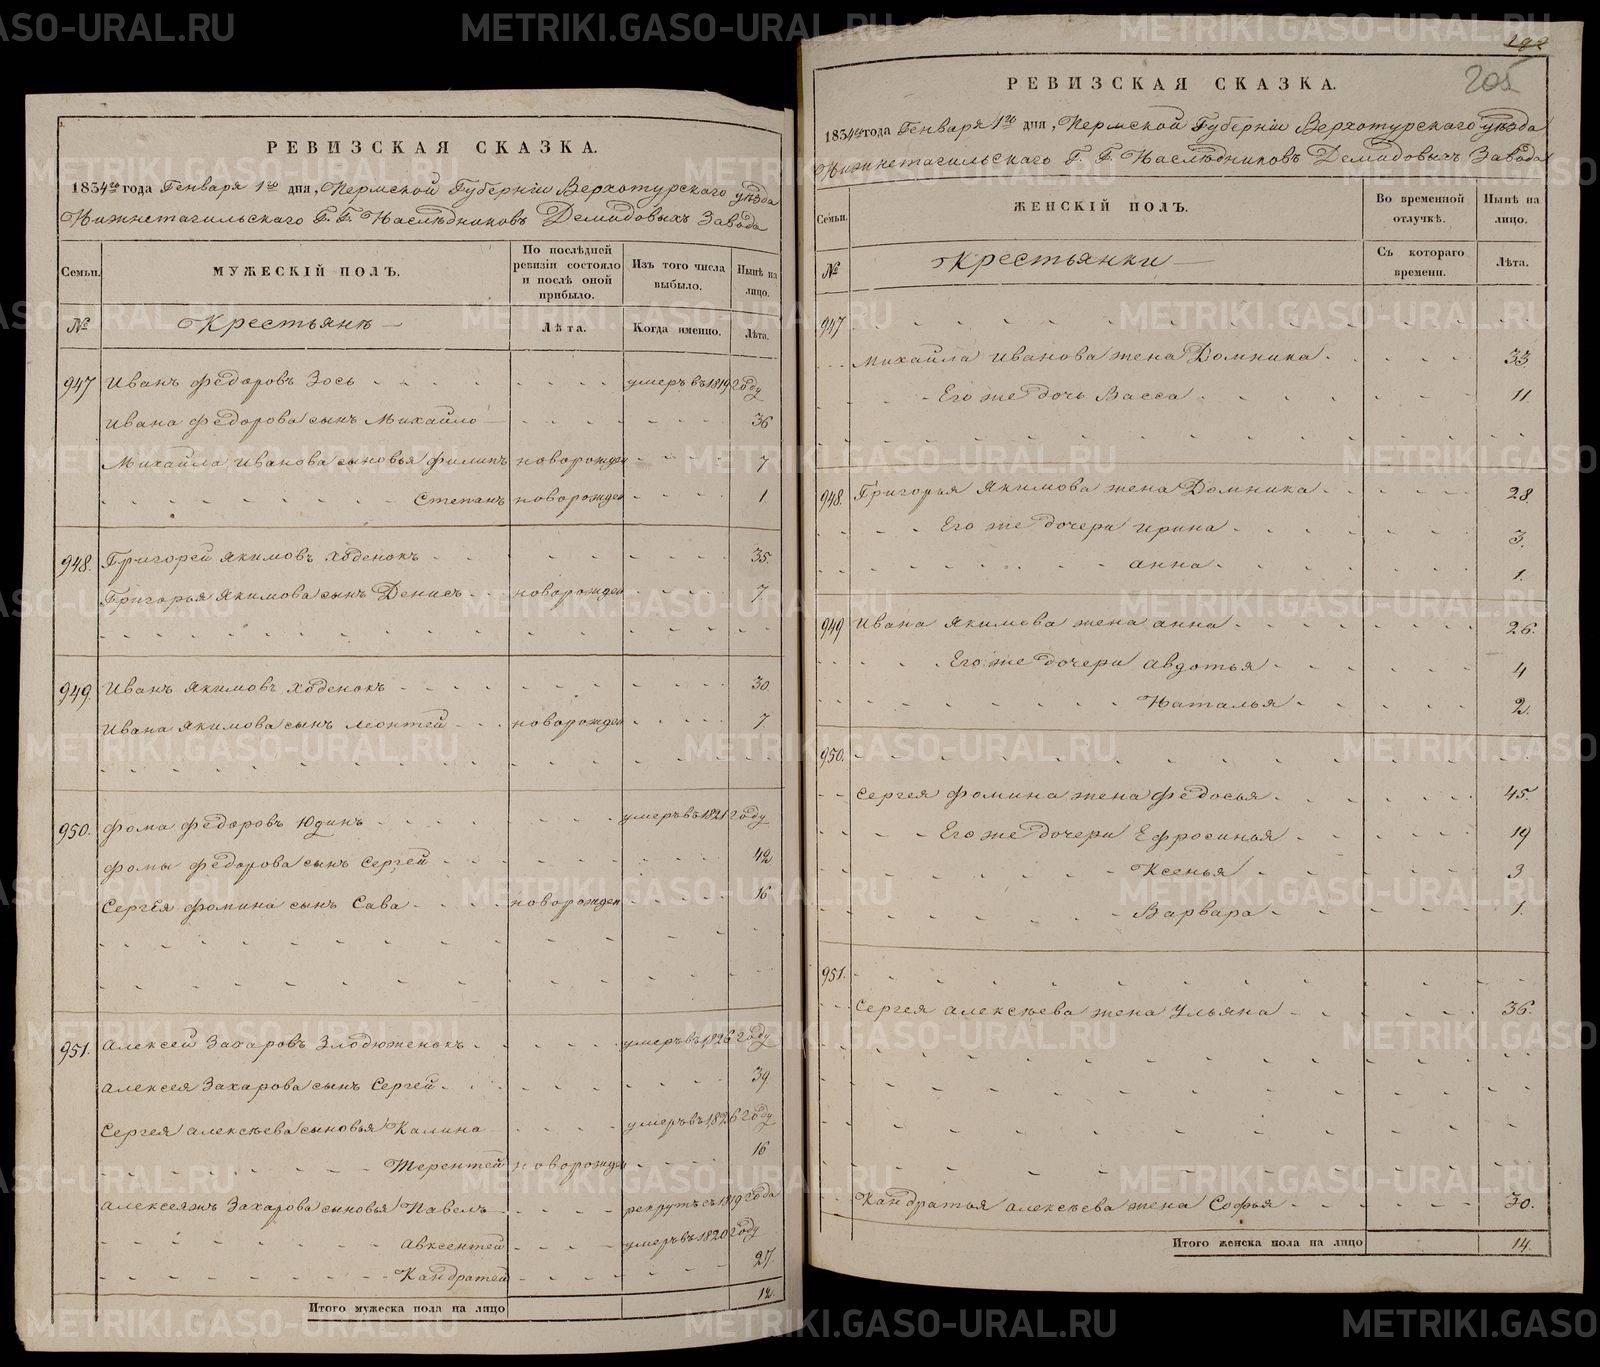 РЕВИЗСКАЯ СКАЗКА.
1834го года Генваря 1го дня, Пермской Губернiи Верхотурскаго уѣзда
Нижнетагильскаго Г. Г. Наслѣдниковъ Демидовыхъ Завода
Семьи. МУЖЕСКIЙ ПОЛЪ. По послѣдней ревизiи состояло и послѣ оной прибыло. Изъ того числа выбыло. Нынѣ на лицо.
№ Крестьянѣ Лѣта. Когда именно. Лѣта.
947 Иванъ Федоровъ Зось умеръ въ 1819 году
Ивана Федорова сынъ Михайло 36
Михайла Иванова сыновья Филипъ новорожден 7
Степанъ новорожден 1
948. Григорей Якимовъ Ходенокъ 35.
Григорья Якимова сынъ Денисъ новорожден 7
949. Иванъ Якимовъ Ходенокъ 30
Ивана Якимова сынъ Леонтей новорожден 7
950. Фома Федоровъ Юдинъ умеръ въ 1821 году
Фомы Федорова сынъ Сергей 42
Сергея Фомина сынъ Сава новорожден 16
951. Алексей Захаровъ Злодюженокъ умеръ въ 1826 году
Алексея Захарова сынъ Сергей 39
Сергея Алексѣева сыновья Калина умеръ въ 1826 году
Терентей новорожден 16
Алексея жъ Захарова сыновья Павелъ рекрутъ съ 1819 года
Авксентей умеръ въ 1820 году
Кандратей 27.
Итого мужеска пола на лицо 12.
205
РЕВИЗСКАЯ СКАЗКА.
1834го года Генваря 1го дня, Пермской Губернiи Верхотурскаго уѣзда
Нижнетагильскаго Г. Г. Наслѣдниковъ Демидовыхъ Завода
Семьи. ЖЕНСКIЙ ПОЛЪ. Во временной отлучкѣ. Нынѣ на лицо.
№ Крестьянки Съ котораго времени. Лѣта.
947
Михайла Иванова жена Домника 33
Его же дочь Васса 11
948. Григорья Якимова жена Домника 28.
Его же дочери Ирина 3.
Анна 1.
949 Ивана Якимова жена Анна 26.
Его же дочери Авдотья 4
Наталья 2.
950.
Сергея Фомина жена Федосья 45.
Его же дочери Ефросинья 19
Ксенья 3
Варвара 1.
951.
Сергея Алексѣева жена Ульяна 36.
Кандратья Алексѣева жена Софья 30.
Итого женска пола на лицо 14.
METRIKI.GASO-URAL.RU